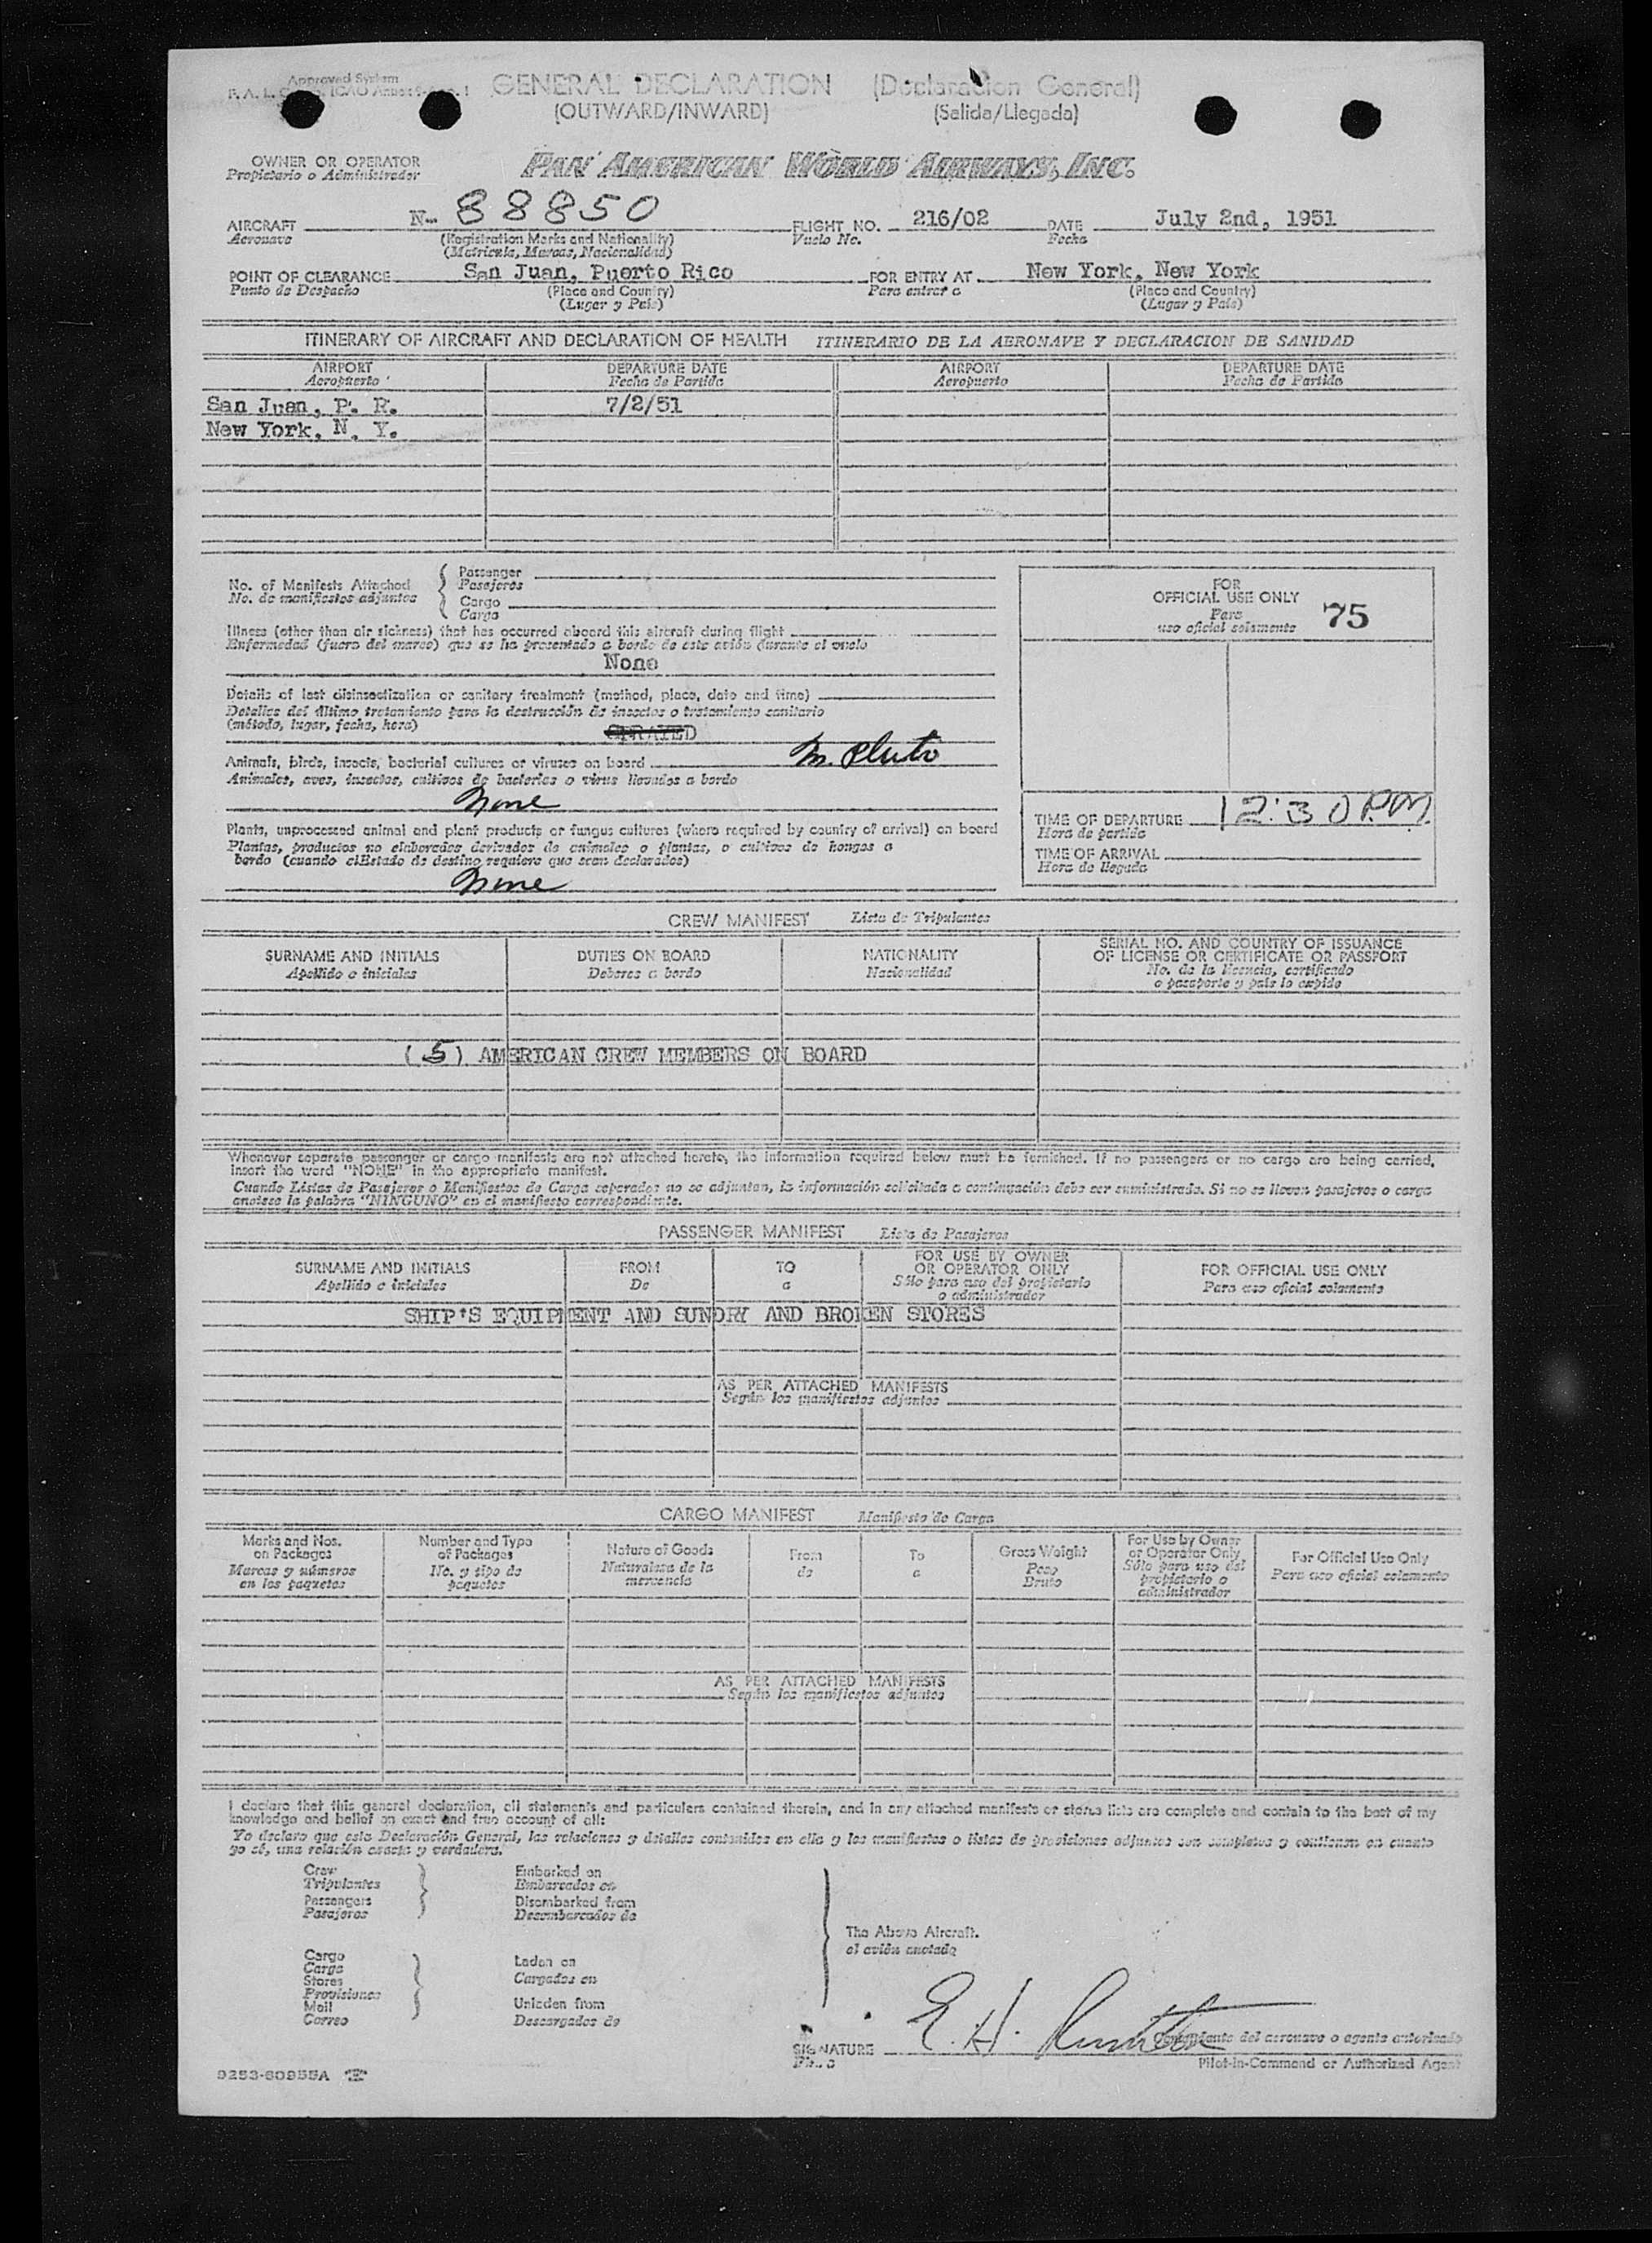 Approved System
GENERAL DECLARATION (Declaracion General)
(OUTWARD/INWARD) (Salida/Llegada)
OWNER OR OPERATOR
Propietario o Administrador
PAN AMERICAN WORLD AIRWAYS, INC.
AIRCRAFT N- 88850 FLIGHT NO. 216/02 DATE July 2nd, 1951
Aeronave (Registration Marks and Nationality) Vuelo No. Fecha
(Matricula, Marcas, Nacionalidad)
POINT OF CLEARANCE San Juan, Puerto Rico FOR ENTRY AT New York, New York
Punto de Despacho (Place and Country) Para entrar a (Place and Country)
(Lugar y Pais) (Lugar y Pais)
ITINERARY OF AIRCRAFT AND DECLARATION OF HEALTH ITINERARIO DE LA AERONAVE Y DECLARACION DE SANIDAD
AIRPORT DEPARTURE DATE AIRPORT DEPARTURE DATE
Aeropuerto Fecha de Partida Aeropuerto Fecha de Partida
San Juan, P. R. 7/2/51
New York, N. Y.
No. of Manifests Attached
No. de manifiestos adjuntos
Passenger
Pasajeros
Cargo
Carga
Illness (other than air sickness) that has occurred aboard this aircraft during flight
Enfermedad (fuera del mareo) que se ha presentado a bordo de este avión durante el vuelo
None
Details of last disinsectization or sanitary treatment (method, place, date and time)
Detalles del último tratamiento para la destrucción de insectos o tratamiento sanitario
(método, lugar, fecha, hora)
M. Pluto
Animals, birds, insects, bacterial cultures or viruses on board
Animales, aves, insectos, cultivos de bacterias o virus llevados a bordo
None
Plants, unprocessed animal and plant products or fungus cultures (where required by country of arrival) on board
Plantas, productos no elaborados derivados de animales o plantas, o cultivos de hongos a
bordo (cuando elEstado de destino requiera que sean declarados)
None
FOR
OFFICIAL USE ONLY
Para
uso oficial solamente
75
TIME OF DEPARTURE 12:30 P.M.
Hora de partida
TIME OF ARRIVAL
Hora de llegada
CREW MANIFEST Lista de Tripulantes
SURNAME AND INITIALS DUTIES ON BOARD NATIONALITY SERIAL NO. AND COUNTRY OF ISSUANCE
Apellido e iniciales Deberes a bordo Nacionalidad OF LICENSE OR CERTIFICATE OR PASSPORT
No. de la licencia, certificado
o pasaporte y pais lo expide
(5) AMERICAN CREW MEMBERS ON BOARD
Whenever separate passenger or cargo manifests are not attached hereto, the information required below must be furnished. If no passengers or no cargo are being carried,
insert the word "NONE" in the appropriate manifest.
Cuando Listas de Pasajeros o Manifiestos de Carga separados no se adjuntan, la información solicitada a continuación debe ser suministrada. Si no se llevan pasajeros o carga
anotese la palabra "NINGUNO" en el manifiesto correspondiente.
PASSENGER MANIFEST Lista de Pasajeros
SURNAME AND INITIALS FROM TO FOR USE BY OWNER OR OPERATOR ONLY FOR OFFICIAL USE ONLY
Apellido e iniciales De a Sólo para uso del propietario o administrador Para uso oficial solamente
SHIP'S EQUIPMENT AND SUNDRY AND BROKEN STORES
AS PER ATTACHED MANIFESTS
Según los manifiestos adjuntos
CARGO MANIFEST Manifiesto de Carga
Marks and Nos. on Packages Number and Type of Packages Nature of Goods From To Gross Weight For Use by Owner or Operator Only For Official Use Only
Marcas y números en los paquetes No. y tipo de paquetes Naturaleza de la mercancia de a Peso Bruto Sólo para uso del propietario o administrador Para uso oficial solamente
AS PER ATTACHED MANIFESTS
Según los manifiestos adjuntos
I declare that this general declaration, all statements and particulars contained therein, and in any attached manifests or stores lists are complete and contain to the best of my
knowledge and belief an exact and true account of all:
Yo declaro que esta Declaración General, las relaciones y detalles contenidos en ella y los manifiestos o listas de provisiones adjuntos son completos y contienen en cuanto
yo sé, una relación exacta y verdadera.
Crew Embarked on
Tripulantes Embarcados en
Passengers Disembarked from
Pasajeros Desembarcados de
The Above Aircraft.
el avión anotado
Cargo Laden on
Carga Cargados en
Stores
Provisiones
Mail Unladen from
Correo Descargados de
SIGNATURE E. H.
Comandante del aeronave o agente autorizado
Pilot-in-Command or Authorized Agent
9253-60955A